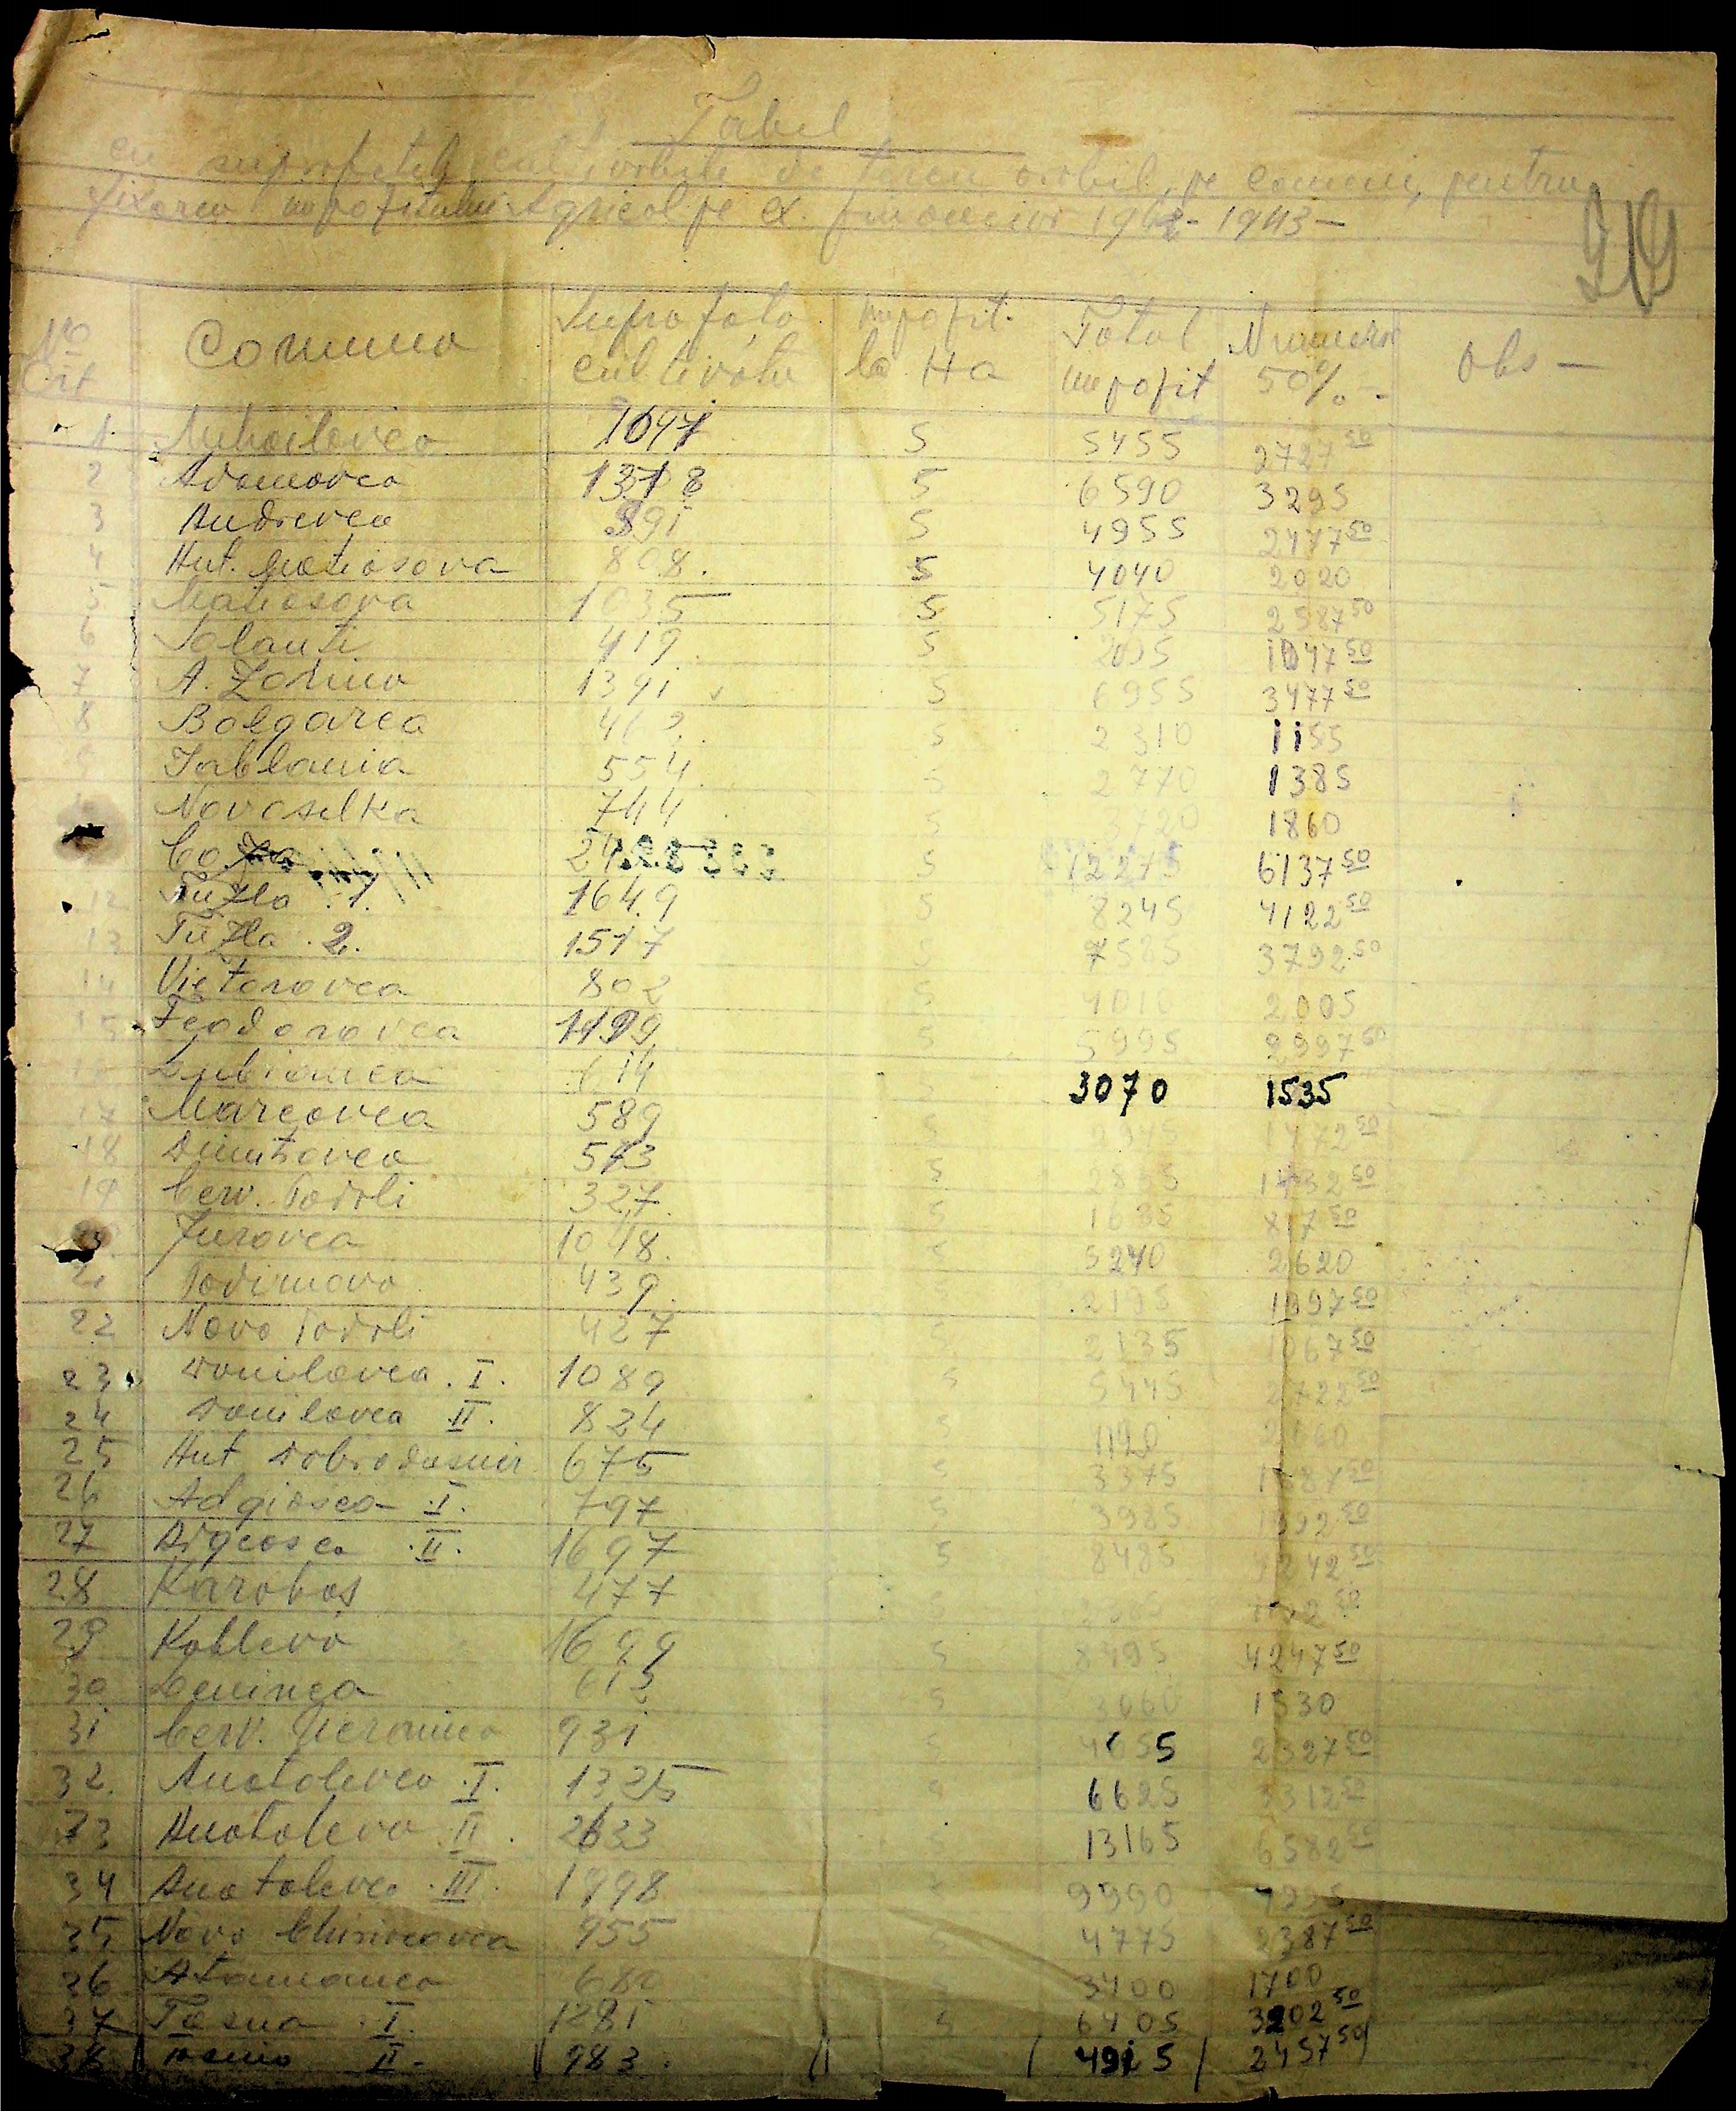 Tabel
cu suprafetele cultivabile de teren arabil, pe comune, pentru
fixarea impozitului Agricol pe ex. financiar 1942-1943-
No Crt Comuna Suprafata cultivata Impozit la Ha Total impozit Numerar 50% - Obs -
1 Mihailovca 5 5455 2727 50
2 Adamovca 1318 5 6590 3295
3 Andrevca 991 5 4955 2477 50
4 Hut. Matiasova 808. 5 4040 2020
5 Matiasova 1035 5 5175 2587 50
6 Salanti 419 5 2095 1047 50
7 A. Zarina 1391 5 6955 3477 50
8 Bolgarca 462 5 2310 1155
9 Jablania 554 5 2770 1385
Novoselka 744 5 3720 1860
5 12275 6137 50
12 Tuzla .1. 1649 5 8245 4122 50
13 Tuzla .2. 1517 7585 3792 50
14 Victorovca 802 5 4010 2005
15 Feodorovca 1199 5 5995 2997 50
614 3070 1535
17 Marcovca 589 5 2945 1472 50
18 Dimitrovca 573 5 2865 1432 50
19 Cerv. Podoli 327 5 1635 817 50
Jurovca 1048. 5240 2620
21 439 2195 1097 50
22 Novo Podoli 427 5 2135 1067 50
23 Danilovca .I. 1089 5 5445 2722 50
24 Danilovca II. 824 5 4120 2060
25 Hut 675 5 3375 1687 50
26 Adgiasca .I. 797 5 3985 1992 50
27 Adgeasca .II. 1697 5 8485 4242 50
28 Karabas 477
29 Koblevo 1699 5 8495 4247 50
30 Leninca 5 3060 1530
31 Cerv. Ucrainca 931 5 4655 2327 50
32. Anatolevca .I. 1325 6625 3312 50
33 Anatolevca II. 2633 13165 6582 50
34 Anatolevca .III. 1998 9990 4995
35 Novo 955 4775 2387 50
36 Atamanca 680 3400 1700
37 Tasna .I. 1281 5 6405 3202 50
38 Tasna II- 983. 4915 2457 50